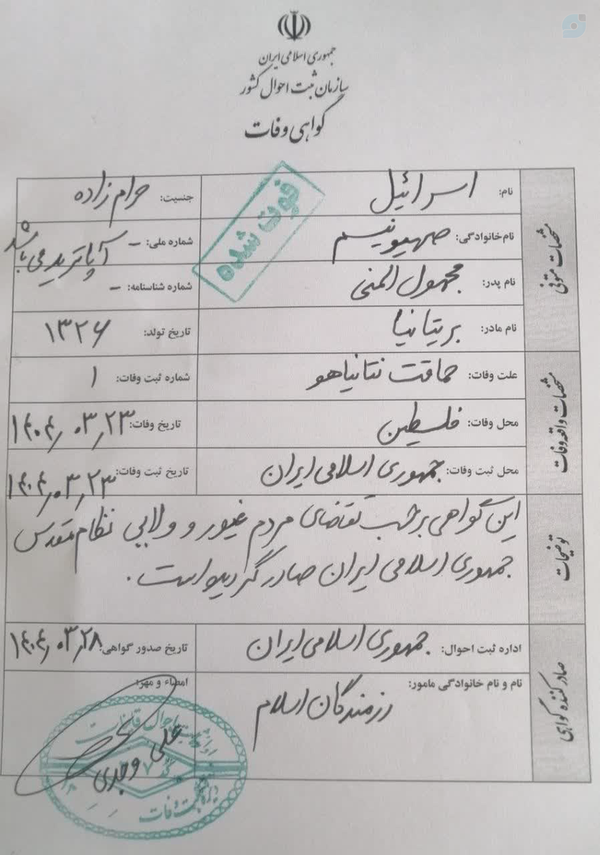 جمهوری اسلامی ایران
سازمان ثبت احوال کشور
گواهی وفات
مشخصات متوفی
نام: اسرائیل
جنسیت: حرام زاده
نام خانوادگی: صهیونیسم
شماره ملی: - آپاتریدمی باشد
نام پدر: مجهول المنی
شماره شناسنامه: -
نام مادر: بریتانیا
تاریخ تولد: ۱۳۲۶
فوت شده
مشخصات واقعه وفات
علت وفات: حماقت نتانیاهو
شماره ثبت وفات: ۱
محل وفات: فلسطین
تاریخ وفات: ۱۴۰۴,۰۳,۲۳
محل ثبت وفات: جمهوری اسلامی ایران
تاریخ ثبت وفات: ۱۴۰۴,۰۳,۲۳
توضیحات
این گواهی برحسب تقاضای مردم غیور و ولایی نظام مقدس
جمهوری اسلامی ایران صادر گردیده است.
صادر کننده گواهی
اداره ثبت احوال: جمهوری اسلامی ایران
تاریخ صدور گواهی: ۱۴۰۴,۰۳,۲۸
نام و نام خانوادگی مامور: رزمندگان اسلام
امضاء و مهر:
علی وجدی
ثبت وفات